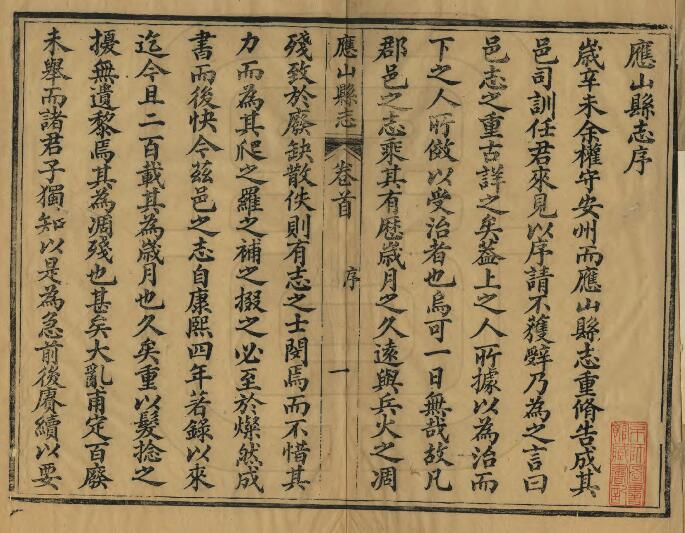 應山縣志序
歲辛未余權守安州而應山縣志重脩告成其
邑司訓任君來見以序請不獲辭乃為之言曰
邑志之重古詳之矣葢上之人所據以為治而
下之人所倣以受治者也烏可一日無哉故凡
郡邑之志乘其有歷歲月之久遠與兵火之凋
應山縣志 卷首 序 一
殘致於廢缺散佚則有志之士閔焉而不惜其
力而為其爬之羅之補之掇之必至於燦然成
書而後快今茲邑之志自康熙四年若錄以來
迄今且二百載其為歲月也久矣重以髮捻之
擾無遺黎焉其為凋殘也甚矣大亂甫定百廢
未舉而諸君子獨知以是為急前後賡續以要